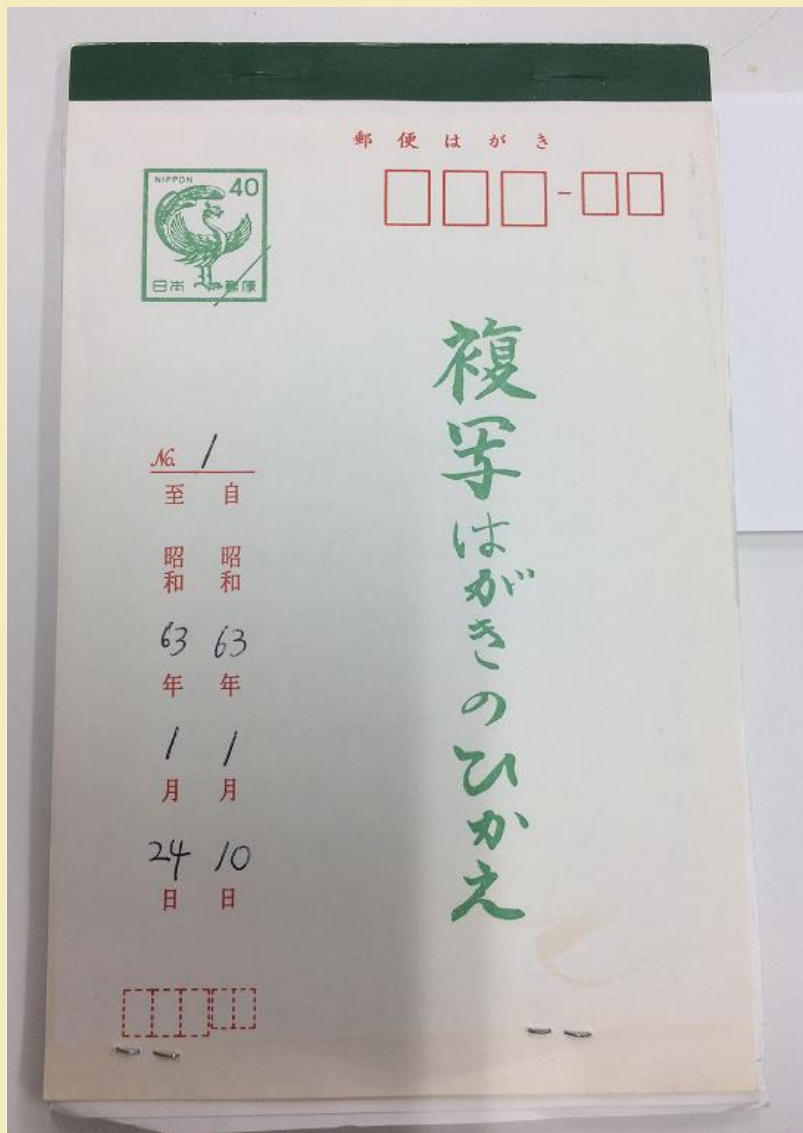 郵便はがき
NIPPON
40
日本郵便
複写はがきのひかえ
No. 1
自 昭和 63 年 1 月 10 日
至 昭和 63 年 1 月 24 日